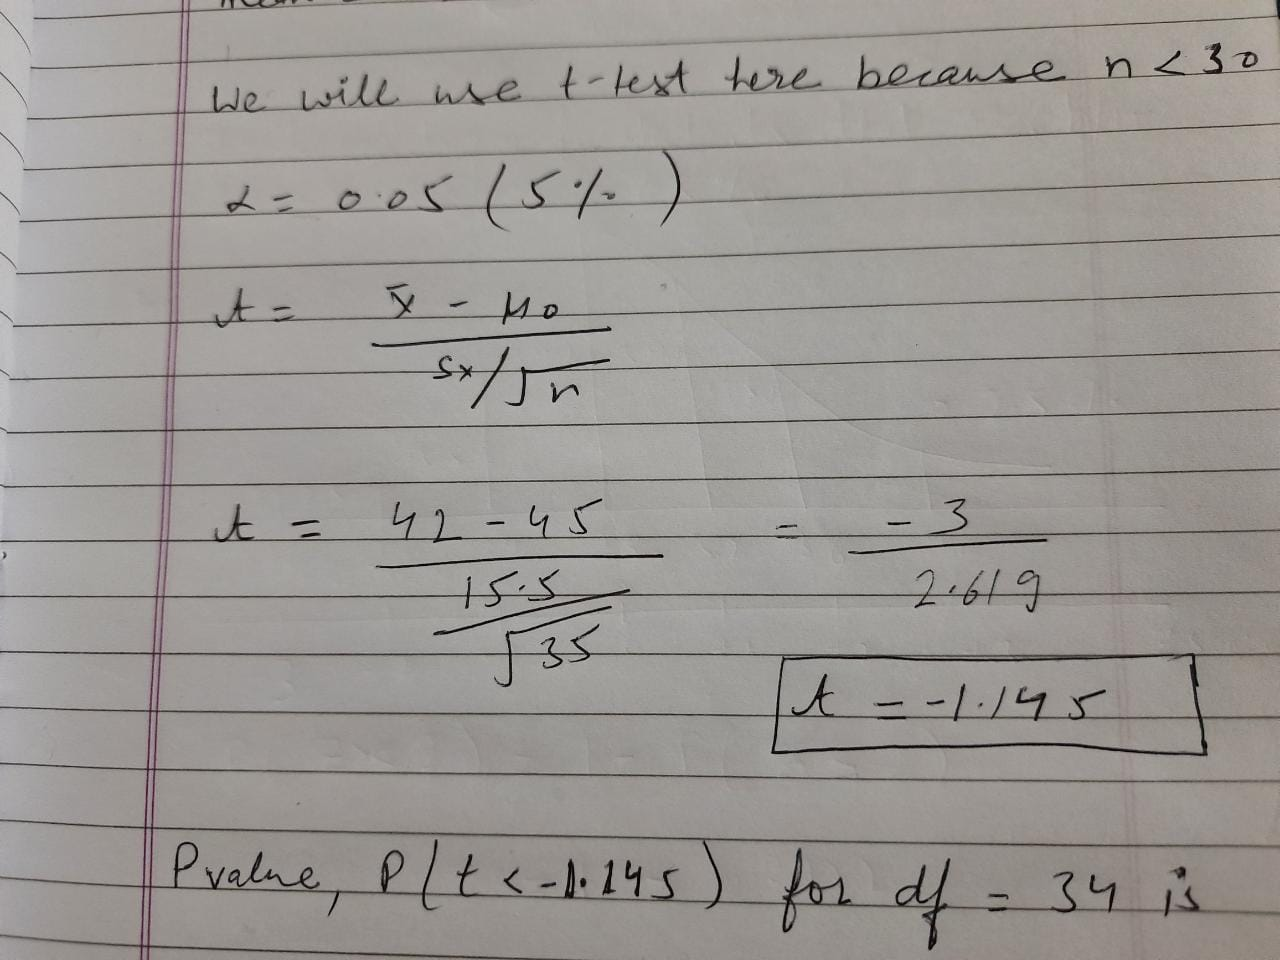 We will use t-test here because n < 30
α = 0.05 (5%)
t = x̄ - μ0 / sx/√n
t = 42 - 45 / 15.5/√35 = -3 / 2.619
t = -1.145
P value, P(t < -1.145) for df = 34 is